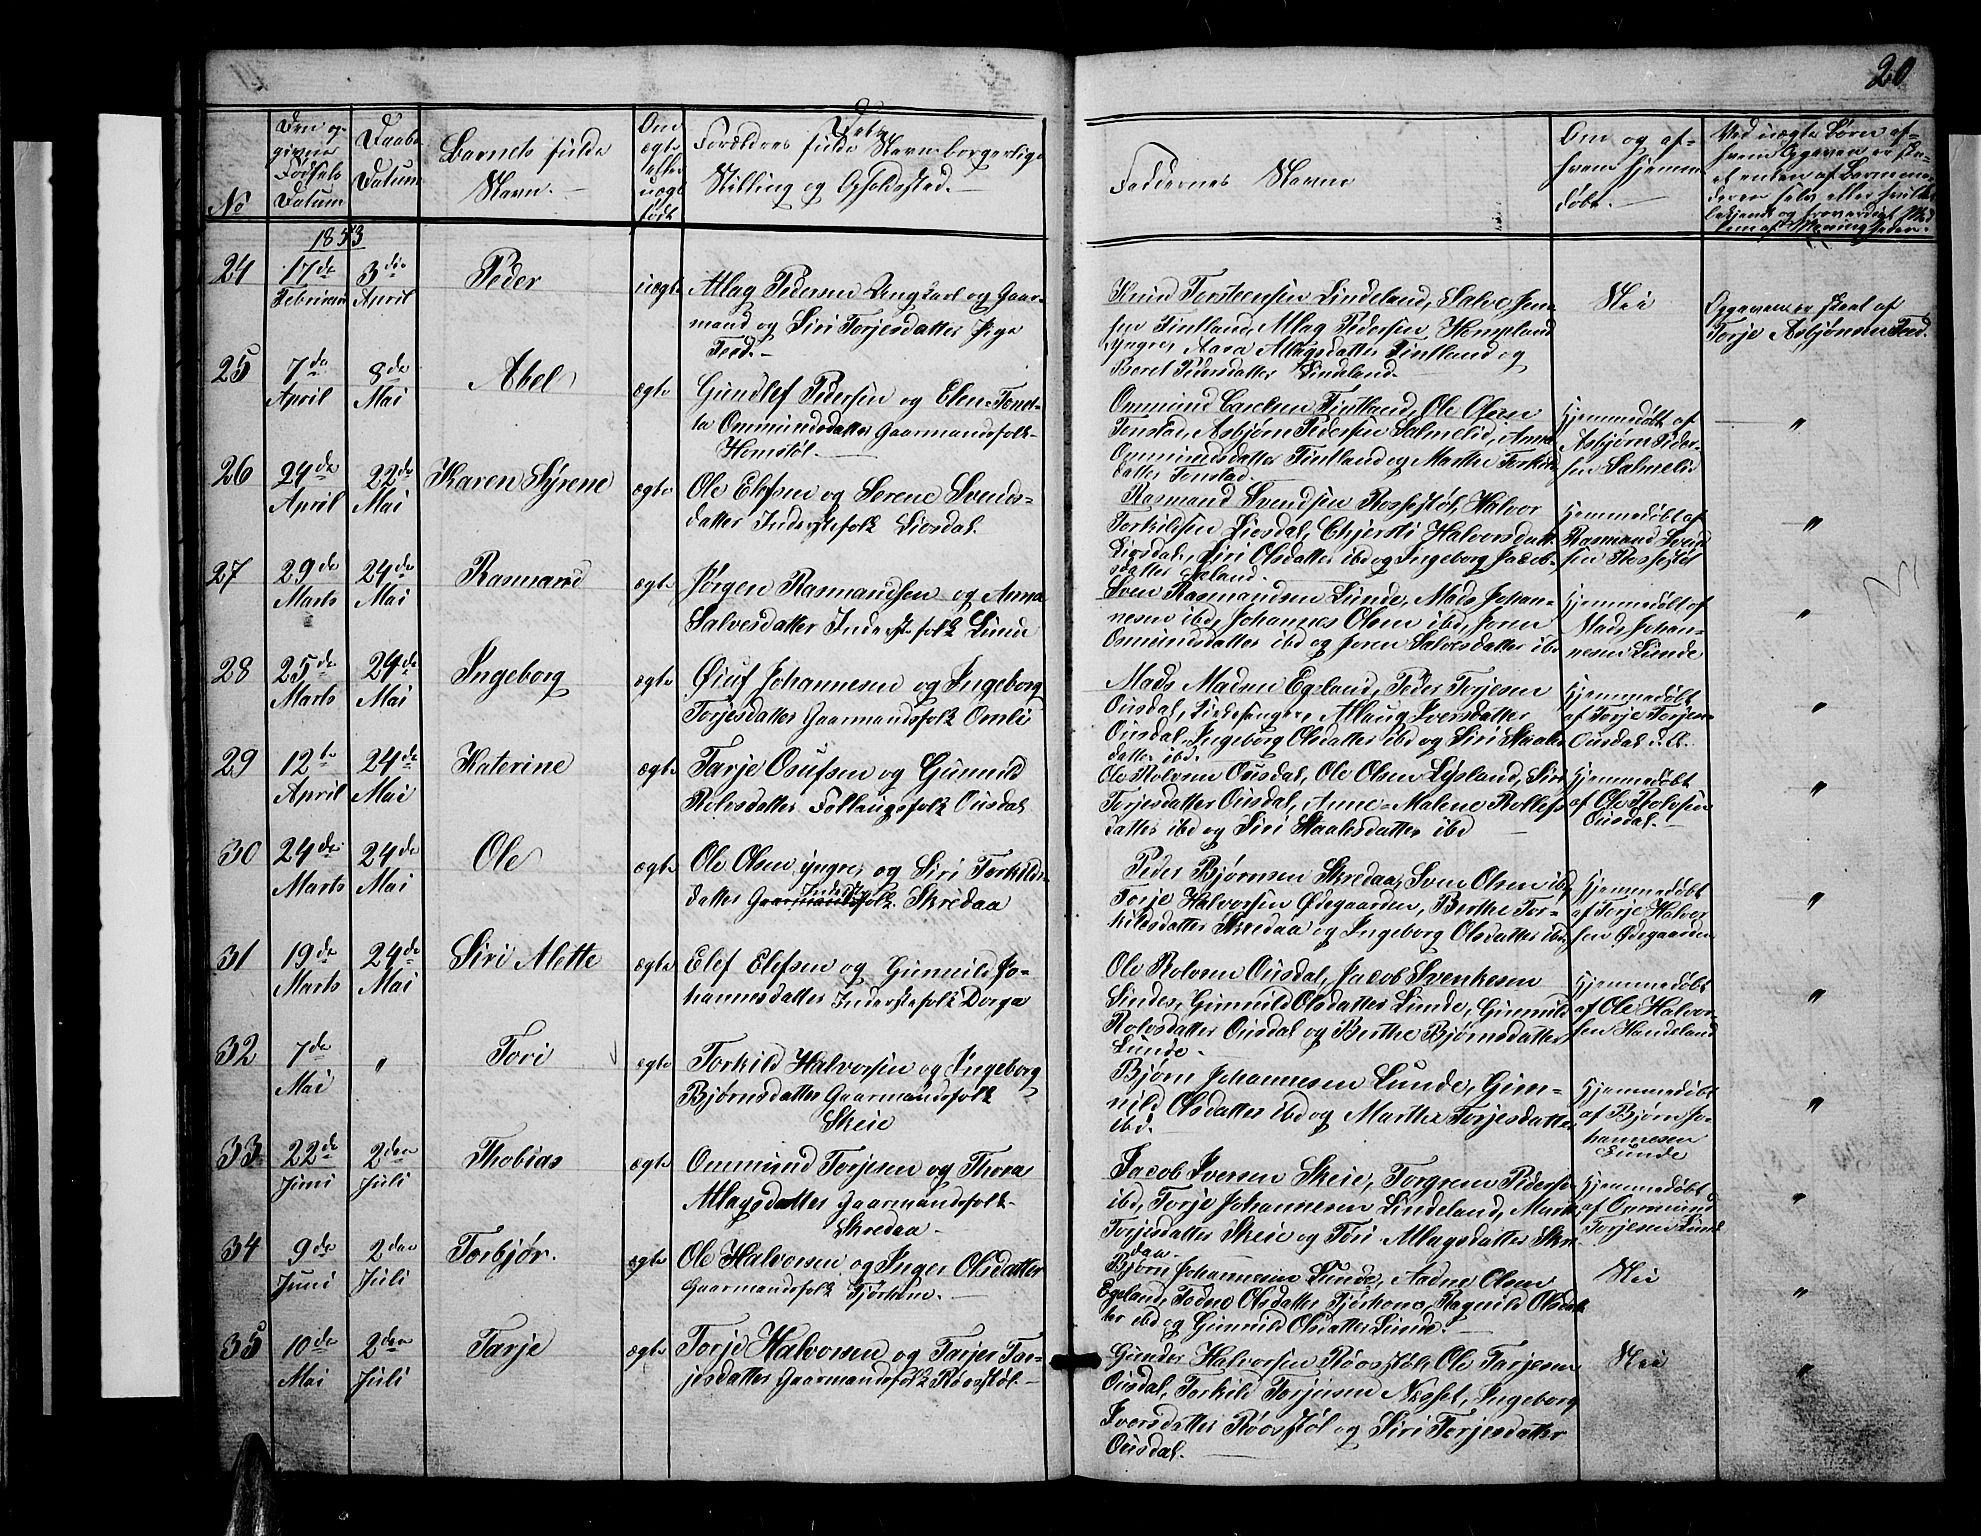 20
No
Den op-
givne
Fødsels
Datum
Daabs
Datum
Barnets fulde
Navn.
Om
ægte
eller
uægte
født
Forældres fulde Navn borgerlige
Stilling og Opholdssted.
Faddernes Navne
Om og af
hvem hjemme
døbt.
1853
24
17de
Februar
3die
April
Peder
uægte
Atlag Pedersen Ungkarl og Gaar-
mand og Siri Torjesdatter Pige
Feed.
Knud Torsteensen Lindeland, Salve Jen-
sen Fintland, Atlag Pedersen Hompland
yngre, Aasa Atlagsdatter Fintland og
Boret Pedersdatter Lindeland.
Nei
Opgaven er skeet af
Torje Asbjørnsen Feed.
25
7de
April
8de
Mai
Abel
ægte
Gundlef Pedersen og Elen Tonet-
ta Ommundsdatter Gaarmandsfolk
Homstøl.
Ommund Carelsen Fintland, Ole Olsen
Tonstad, Asbjørn Pedersen Salmelid, Anna
Ommundsdatter Fintland og Marthe Torkils
datter Tonstad.
Hjemmedøbt af
Asbjørn Peder-
sen Salmelid
"
26
24de
April
22de
Mai
Karen Syrene
ægte
Ole Elefsen og Serene Svends-
datter Inderstefolk Liosdal.
Rasmund Svendsen Rossestøl, Halvor
Torkildsen Liosdal, Chjersti Halvorsdatt.
Liosdal, Siri Olsdatter ibd og Ingeborg Jacob-
sdatter
Hjemmedøbt af
Rasmund Svend
sen Rossestøl
"
27
29de
Marts
24de
Mai
Rasmund
ægte
Jørgen Rasmundsen og Anna
Salvesdatter Inderstefolk Lunde
Sven Rasmundsen Lunde, Mads Johan-
nesen ibd, Johannes Olsen ibd, Joren
Ommundsdatter ibd og Joren Salvesdatter ibd
Hjemmedøbt af
Mads Johan-
nesen Lunde
"
28
25de
Marts
24de
Mai
Ingeborg
ægte
Øiuf Johannesen og Ingeborg
Torjesdatter Gaarmandsfolk Omli
Mads Madsen Egeland, Peder Torjesen
Ousdal, Kirkesanger, Atlaug Iversdatter
Ousdal, Ingeborg Olsdatter ibd og Siri Staales
datter ibd.
Hjemmedøbt
af Torje Torjesen
Ousdal
"
29
12te
April
24de
Mai
Katerine
ægte
Tarje Osufsen og Gunuld
Rolvsdatter Fællaugsfolk Ousdal
Ole Rolvsen Ousdal, Ole Olsen Lysland, Siri
Torjesdatter Ousdal, Anne-Malene Rollefs
datter ibd og Siri Staalesdatter ibd
Hjemmedøbt
af Ole Rolvsen
Ousdal.
"
30
24de
Marts
24de
Mai
Ole
ægte
Ole Olsen yngre og Siri Torkilds-
Inderste
datter Gaarmandsfolk Skredaa
Peder Bjørnsen Skredaa, Sven Olsen ibd,
Torje Halvorsen Ødegaarden, Berthe Tor-
kildsdatter Skredaa og Ingeborg Olsdatter ibd
Hjemmedøbt
af Torje Halvor
sen Ødegaarden
"
31
19de
Marts
24de
Mai
Siri Alette
ægte
Elef Elefsen og Gunuild Jo-
hannesdatter Inderstefolk Dorga
Ole Rolvsen Ousdal, Jacob Svenkesen
Lindes, Gunuild Olsdatter Lunde, Gunuld
Rolvsdatter Ousdal og Berthe Bjørnsdatter
Lunde.
Hjemmedøbt
af Ole Halvor-
sen Haudeland
"
32
7de
Mai
"
Tori
ægte
Torkild Halvorsen og Ingeborg
Bjørnsdatter Gaarmandsfolk
Skeie
Bjørn Johannesen Lunde, Gun-
nild Olsdatter ibd og Marthe Torjesdatter
ibd.
Hjemmedøbt
af Bjørn Jo-
hannesen
Lunde
"
33
22de
Juni
2den
Juli
Thobias
ægte
Ommund Torjesen og Thora
Atlagsdatter Gaarmandsfolk
Skredaa
Jacob Iversen Skeie, Torgrem Pedersen
ibd, Torje Johannesen Lindeland, Marthe
Torjesdatter Skeie og Tori Atlagsdatter Skre-
daa.
Hjemmedøbt
af Ommund
Torjesen Lunde
"
34
9de
Juni
2den
Juli
Torbjør.
ægte
Ole Halvorsen og Inger Olsdatter
Gaarmandsfolk Fjørhom.
Bjørn Johannesen Lunde, Aadne Olsen
Egeland, Todne Olsdatter Fjørhom, Ragnild Olsdat
ter ibd og Gunuild Olsdatter Lunde.
Nei
"
35
10de
Mai
2den
Juli
Tarje
ægte
Torje Halvorsen og Tarjer Tar-
jesdatter Gaarmandsfolk Roosstøl
Gunder Halvorsen Roosstøl, Ole Tarjesen
Ousdal, Torkild Torjusen Nesset, Ingeborg
Iversdatter Roosstøl og Siri Torjesdatter
Ousdal.
Nei
"